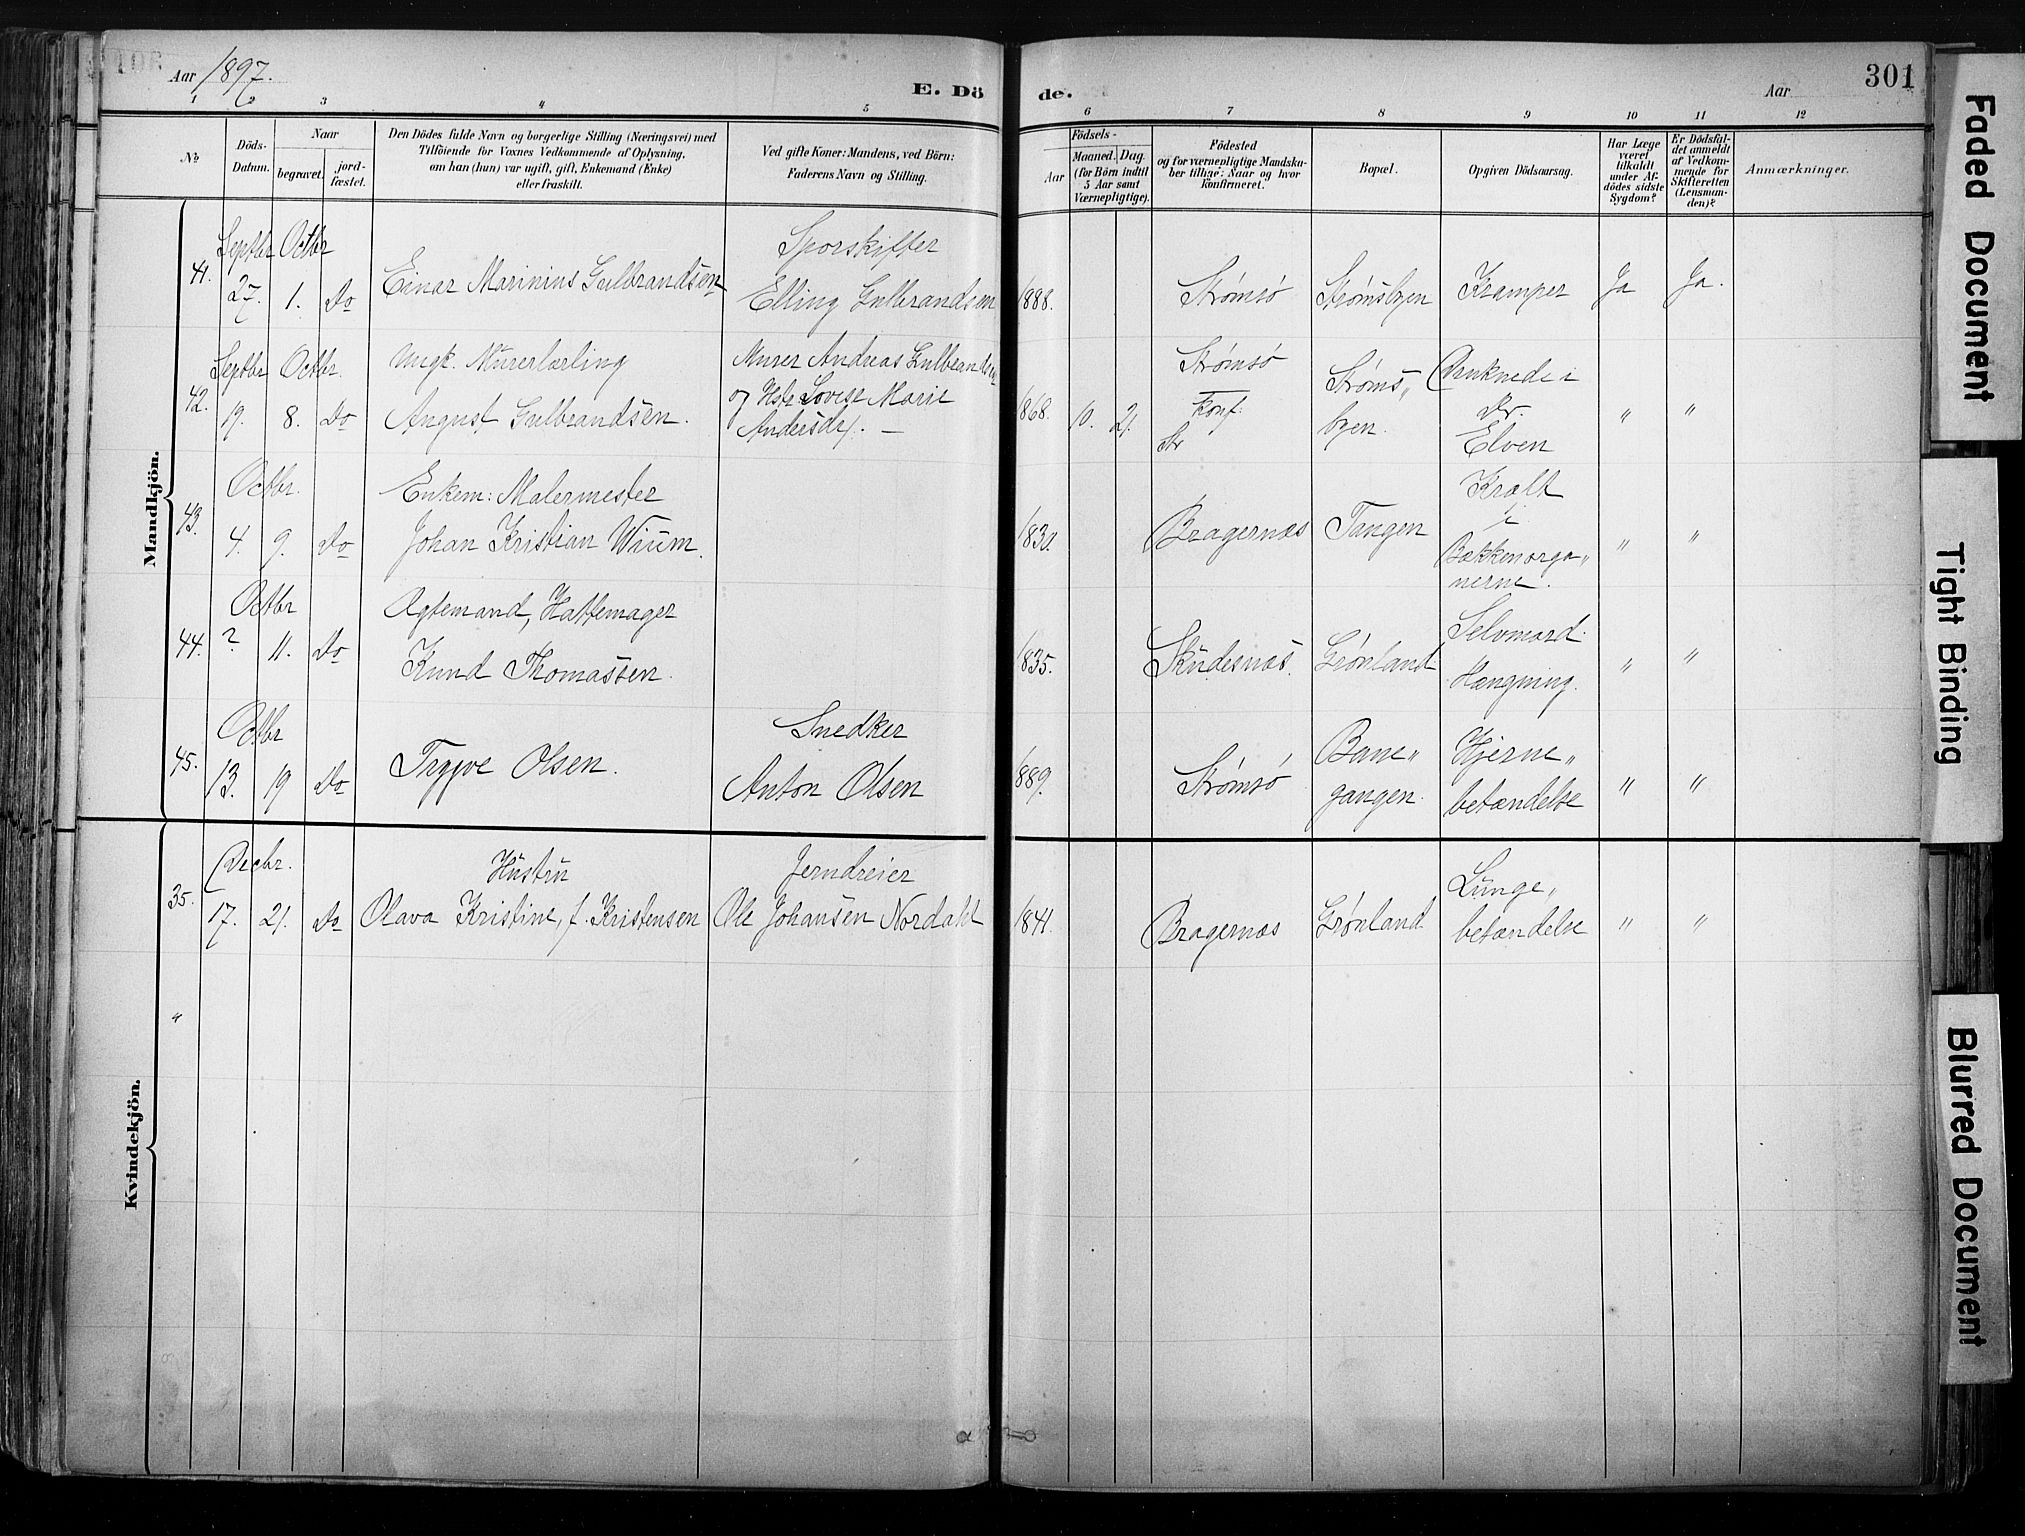 Aar 1897.
E. Dö
de.
Aar
301
1 2 3 4 5
6 7 8 9 10 11 12
No
Döds-Datum.
Naar
begravet.
jord-fæstet.
Den Dödes fulde Navn og borgerlige Stilling (Næringsvei) med
Tilföiende for Voxnes Vedkommende af Oplysning,
om han (hun) var ugift, gift, Enkemand (Enke)
eller fraskilt.
Ved gifte Koner: Mandens, ved Börn:
Faderens Navn og Stilling.
Födsels-
Aar
Maaned. Dag.
(for Börn indtil
5 Aar samt
Værnepligtige).
Födested
og for værnepligtige Mandska-
ber tillige: Naar og hvor
Konfirmeret.
Bopæl.
Opgiven Dödsaarsag.
Har Læge
været
tilkaldt
under Af-
dödes sidste
Sygdom?
Er Dödsfal-
det anmeldt
af Vedkom-
mende for
Skifteretten
(Lensman-
den)?
Anmærkninger.
Mandkjön.
Septbr Octbr Sporskifter
41. 27. 1. Do Einar Marinius Gulbrandsen Elling Gulbrandsen 1888. Strømsö Strømsbyen Kramper Ja Ja.
Septbr Octbr. Ungk. Murerlærling Murer Andreas Gulbrandsen Strømsö Strøms„ Druknede i
42. 19. 8. Do August Gulbrandsen. og Hstr Lovise Marie 1868. 10. 21. Konf. byen. Dr. " "
Andersdt. — Str Elven
Octbr. Enkem: Malermester Kræft
43. 4. 9. Do Johan Kristian Wium. 1830. Bragernæs Tangen i " "
Bækkenorga„
nerne.
Octbr Ægtemand, Hattemager Selvmord.
44. ? 11. Do Knud Thomassen. 1835. Skudesnæs. Grønland Hængning. " "
Octbr Snedker Bane„ Hjerne„
45. 13. 19 Do Trygve Olsen. Anton Olsen 1889. Strømsö gangen. betændelse " "
Kvindekjön.
Decbr. Hustru Jerndreier Lunge„
35. 17. 21. Do Olava Kristine, f. Kristensen Ole Johansen Nordahl 1841. Bragernæs Grønland betændelse " "
"
Faded Document
Tight Binding
Blurred Document